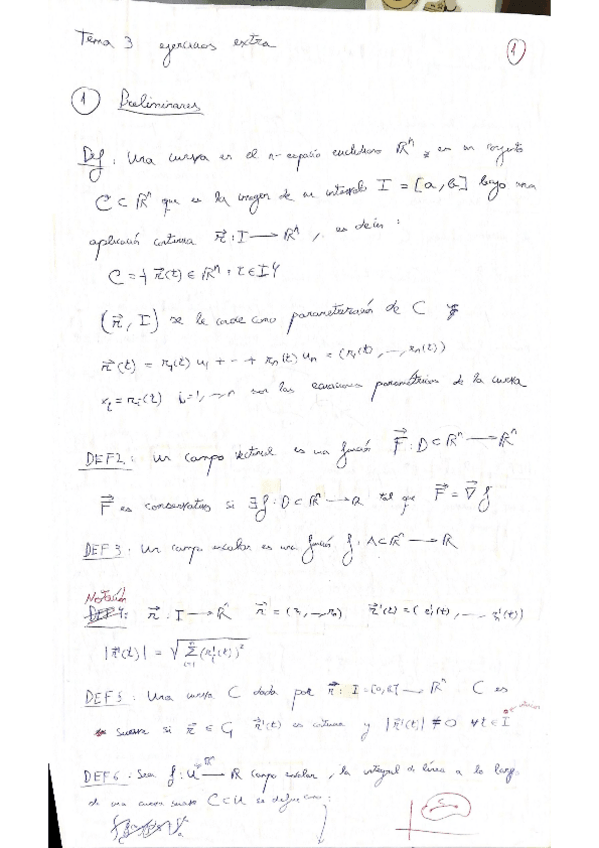 Tema 3 ejercicios extra
1
1 Preliminares
Def: Una curva en el n-espacio euclídeo ℝⁿ es un conjunto
C ⊂ ℝⁿ que es la imagen de un intervalo I = [a, b] bajo una
aplicación continua r⃗ : I → ℝⁿ, es decir:
C = { r⃗(t) ∈ ℝⁿ : t ∈ I }
(r⃗, I) se le parametrización de C
r⃗(t) = r₁(t) u₁ + ... + rₙ(t) uₙ = (r₁(t), ..., rₙ(t))
xᵢ = rᵢ(t) i=1, ..., n son las ecuaciones paramétricas de la curva
DEF2: Un campo vectorial es una función F⃗ : D ⊂ ℝⁿ → ℝⁿ
F⃗ es conservativo si ∃f : D ⊂ ℝⁿ → ℝ tal que F⃗ = ∇⃗f
DEF3: Un campo escalar es una función f : A ⊂ ℝⁿ → ℝ
Notación
DEF4: r⃗ : I → ℝⁿ r⃗ = (r₁, ..., rₙ) r⃗'(t) = (r₁'(t), ..., rₙ'(t))
|r⃗'(t)| = √(∑ᵢ₌₁ⁿ (rᵢ'(t))²)
DEF5: Una curva C dada por r⃗ : I = [a, b] → ℝⁿ C es
suave si r⃗ ∈ C₁ r⃗'(t) es y |r⃗'(t)| ≠ 0 ∀t ∈ I
DEF6: Sea f : U ⊂ ℝⁿ → ℝ campo escalar, la integral de línea a lo largo
de una curva suave C ⊂ U se define como: